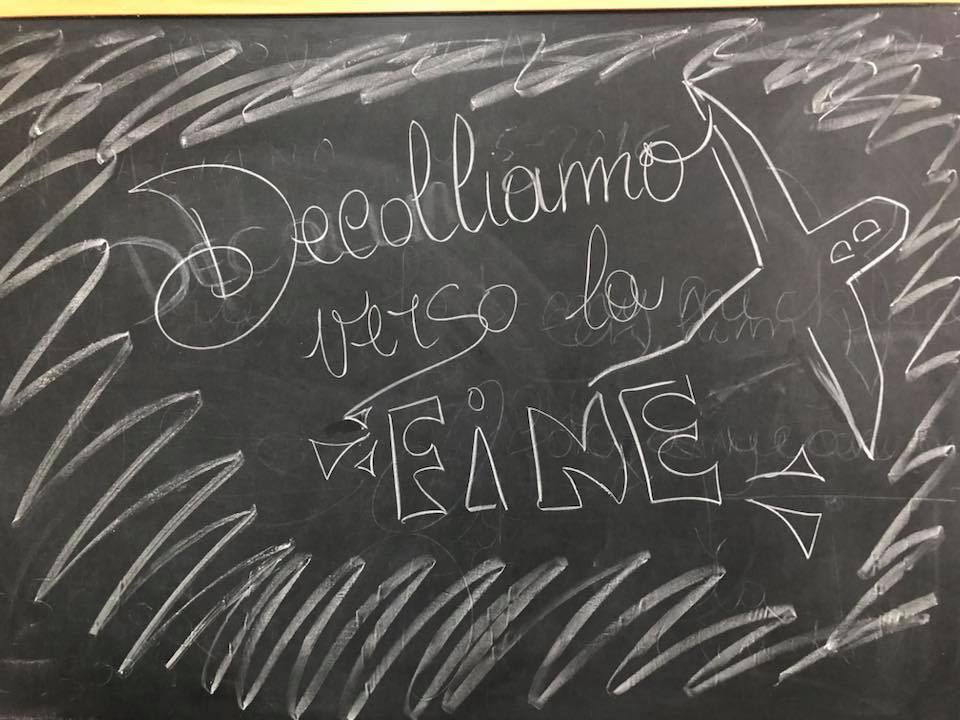 Decolliamo
verso la
FiNE